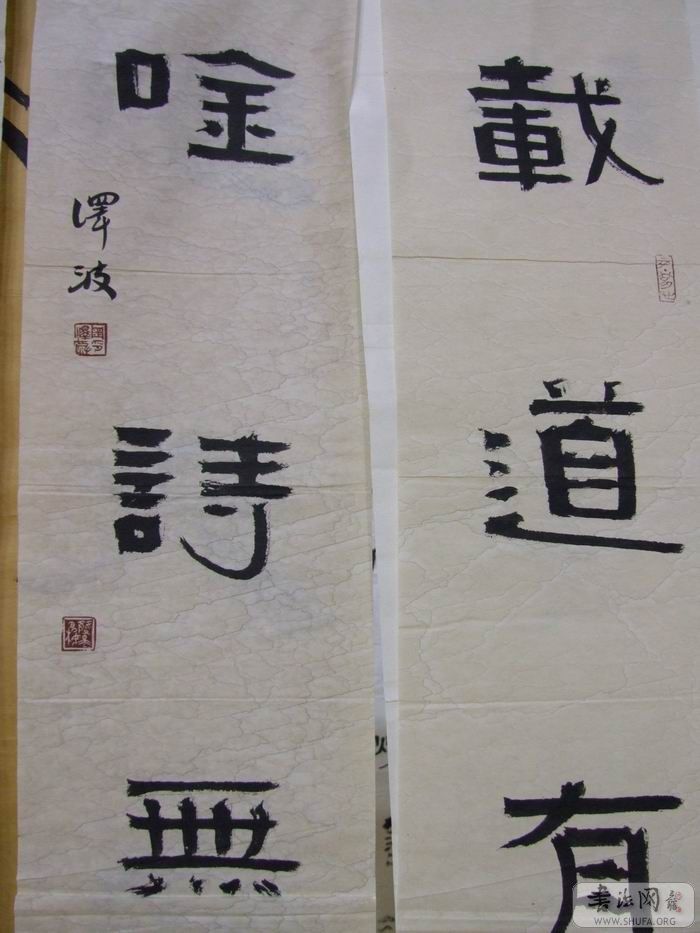 載道有
唫詩無
澤波
书法网
WWW.SHUFA.ORG